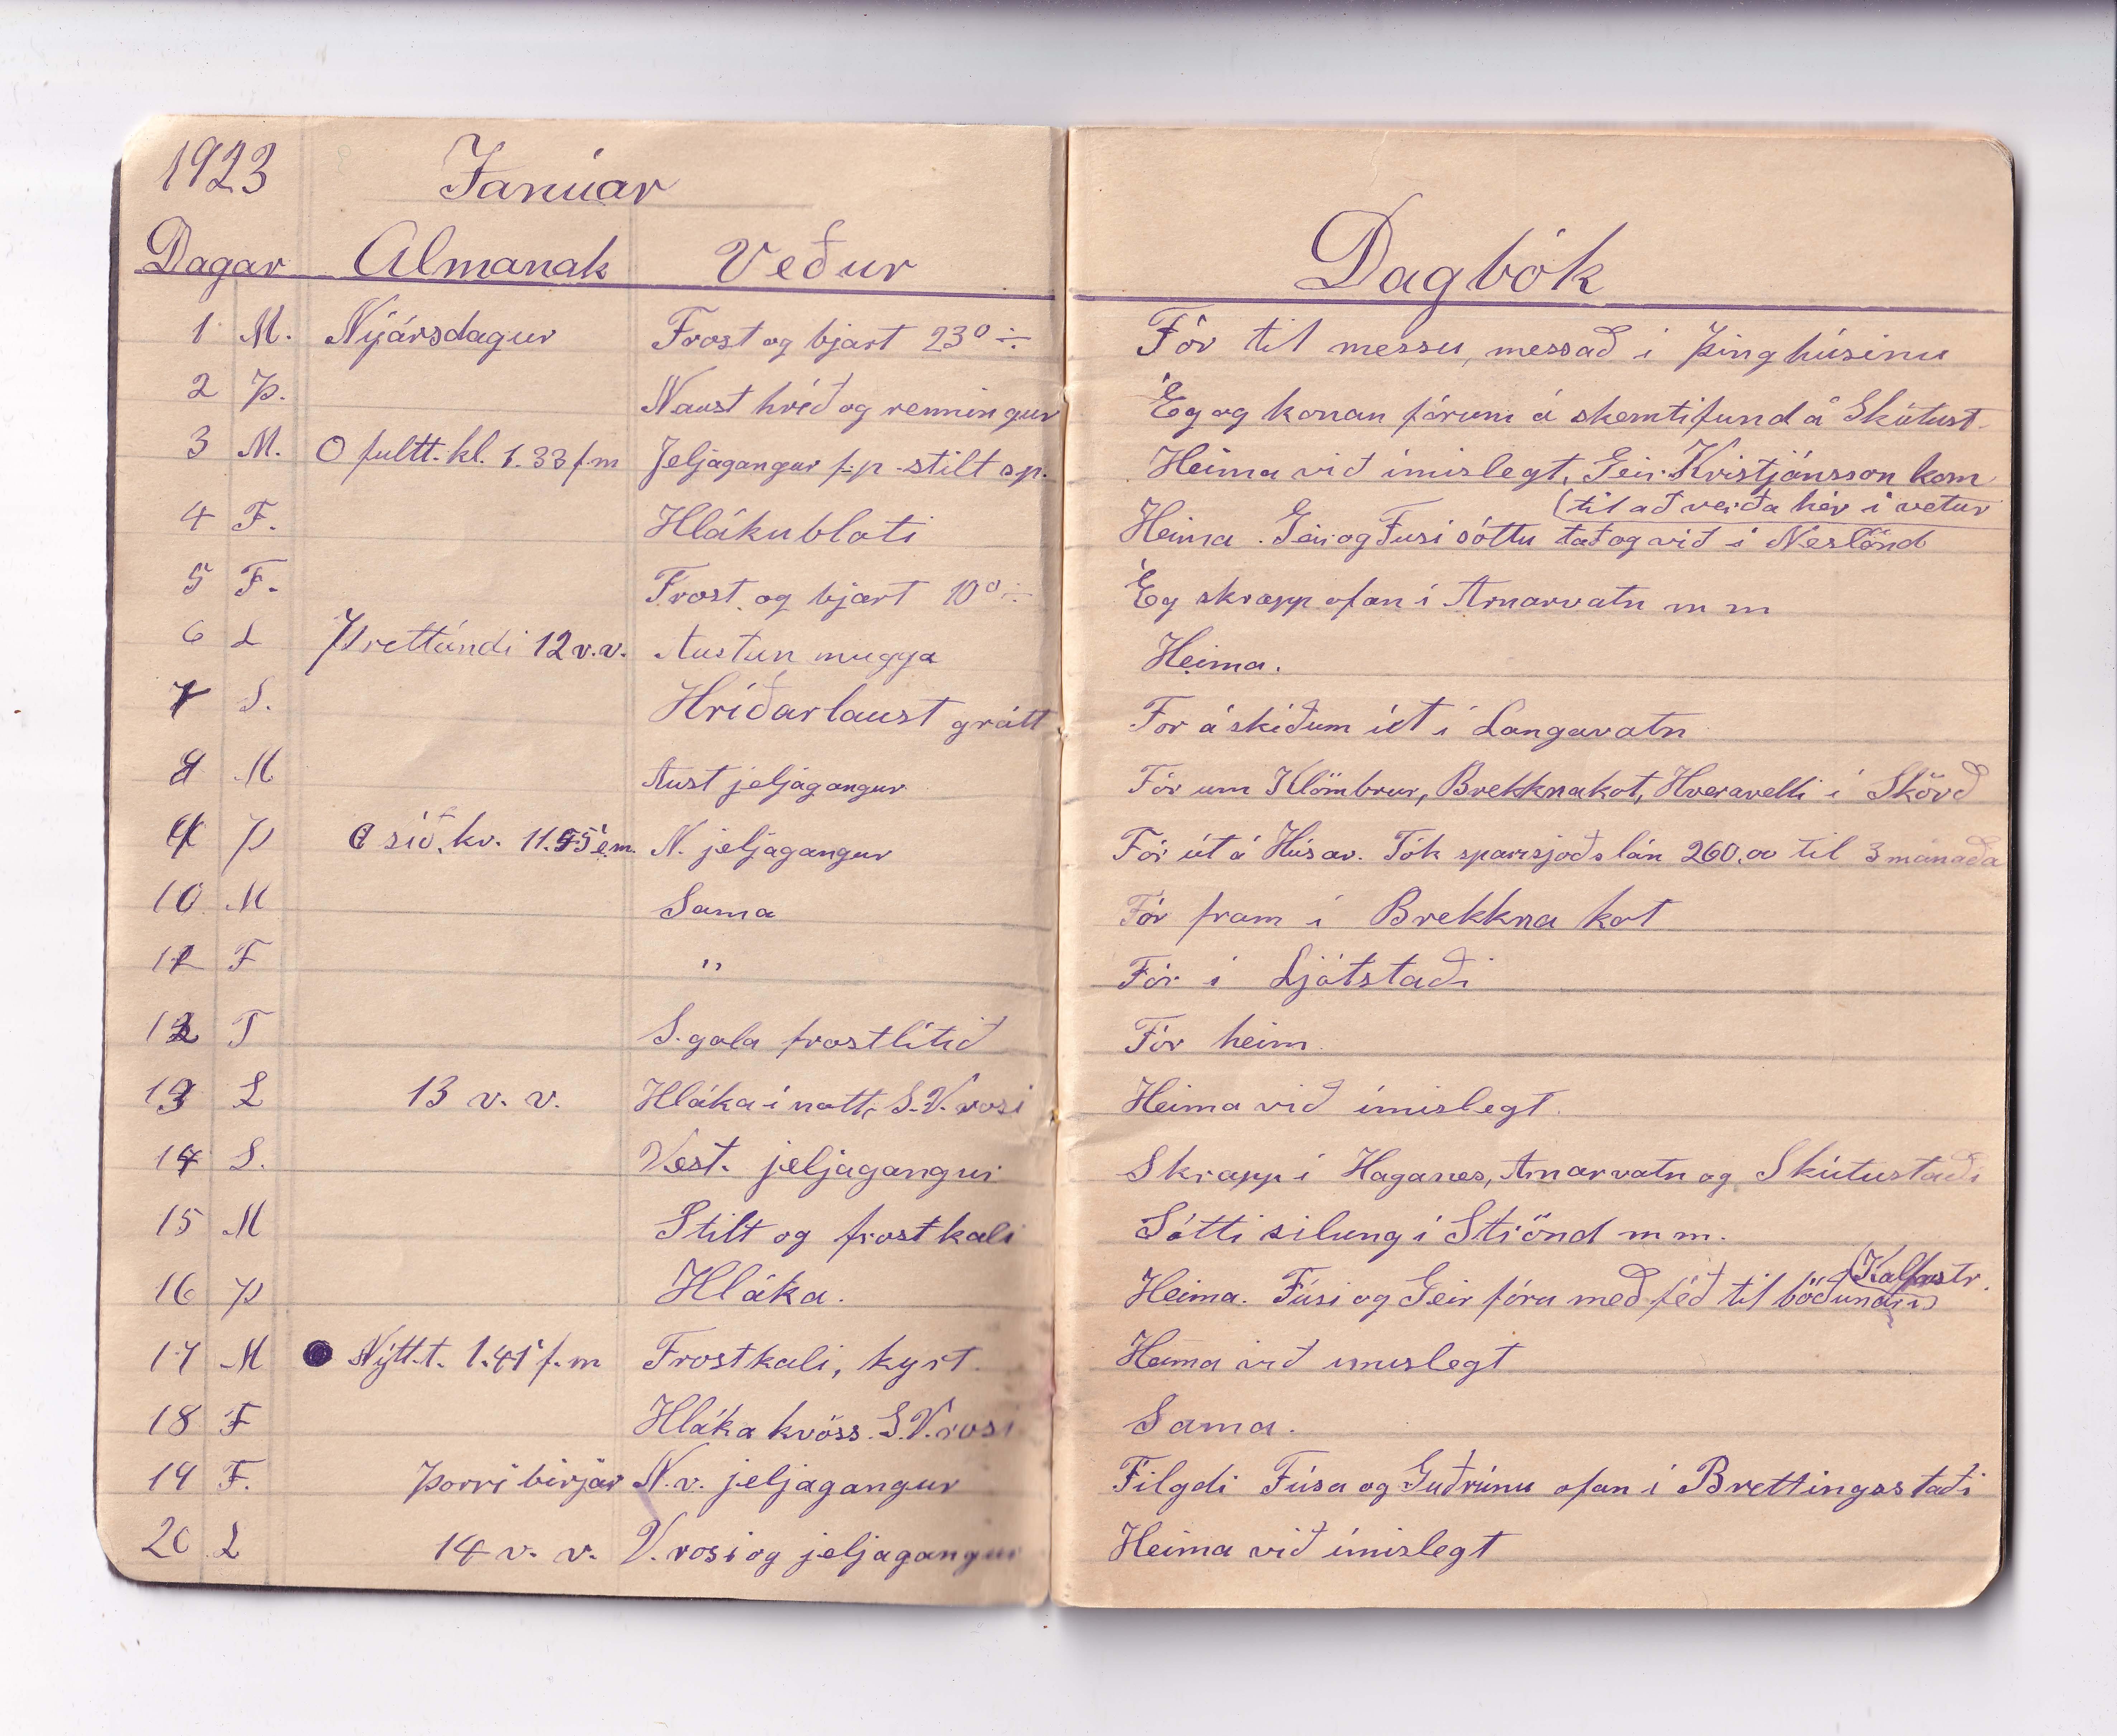 1923 Janúar
Dagar Almanak Veður Dagbók
1 M. Nýársdagur Frost og bjart 23° ÷ Fór til messu, messað í Þinghúsinu
2 Þ. Naust hríð og renningur Ég og konan fórum á skemtifund á Skútust.
3 M. O fullt. kl. 1.33 f.m Jeljagangur f.p. stilt s.p. Heima við ímislegt, Geir Kristjánsson kom
(til að verða hér í vetur
4 F. Hlákubloti Heima. Geir og Fusi sóttu tað og við í Neslönd
5 F. Frost og bjart 10° ÷ Ég skrapp ofan í Arnarvatn m m
6 L Þrettándi 12 v.v. Austan mugga Heima.
7 S. Hríðarlaust grátt For á skíðum út í Langavatn
8 M Aust jeljagangur Fór um Klömbrur, Brekknakot, Hveravelli í Skörð
9 Þ síð. kv. 11.55 em. N. jeljagangur Fór út á Húsav. Tók sparisjoðslán 260.00 til 3 mánaða
10 M Sama Fór fram í Brekkna kot
11 F " Fór í Ljótstaði
12 F S. gola frostlítið Fór heim.
13 L 13 v. v. Hláka í nótt, S.V. rosi Heima við ímislegt.
14 S. Vest. jeljagangur Skrapp í Haganes, Arnarvatn og Skútustaði
15 M Stilt og frostkali Sótti silung í Strönd m m.
(Kálfastr.
16 Þ Hláka. Heima. Fúsi og Geir fóru með féð til böðunar í
17 M Nýtt t. 1.41 f.m Frostkali, kyrt. Heima við ímislegt
18 F Hláka hvöss. S.V. rosi Sama.
19 F. Þorri birjar N.v. jeljagangur Filgdi Fúsa og Guðrúnu ofan í Brettingsstaði
20 L 14 v. v. V. rosi og jeljagangur Heima við ímislegt